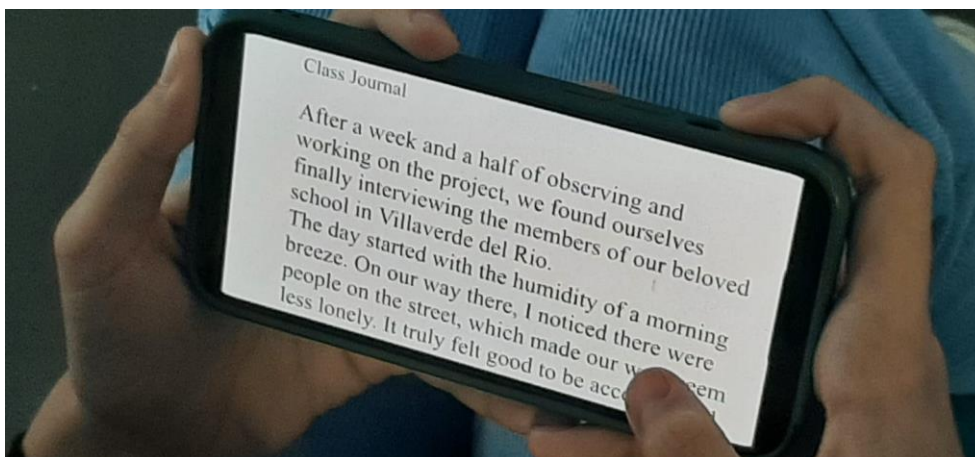 Class Journal
After a week and a half of observing and
working on the project, we found ourselves
finally interviewing the members of our beloved
school in Villaverde del Rio.
The day started with the humidity of a morning
breeze. On our way there, I noticed there were
people on the street, which made our
less lonely. It truly felt good to be